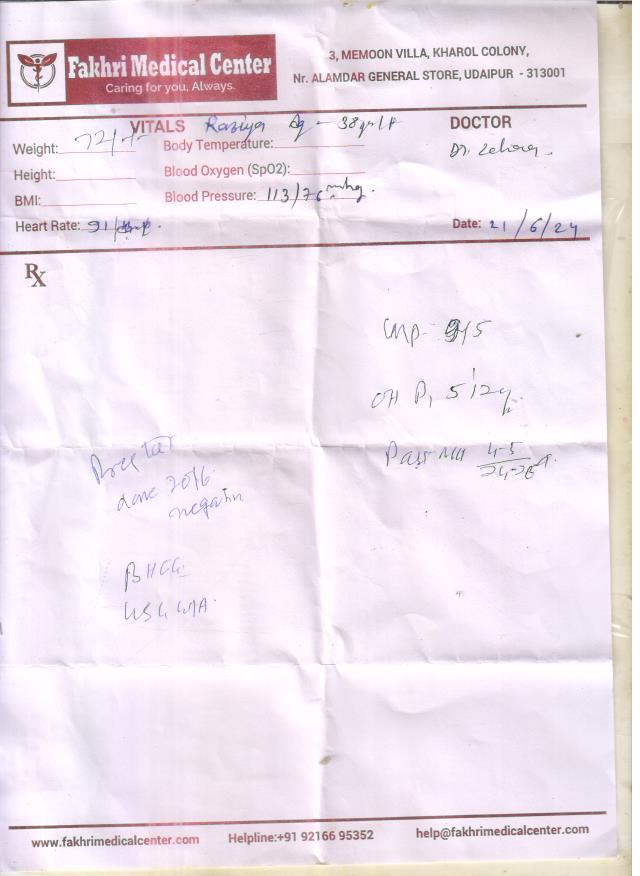 Fakhri Medical Center
Caring for you, Always.
3, MEMOON VILLA, KHAROL COLONY,
Nr. ALAMDAR GENERAL STORE, UDAIPUR - 313001
VITALS Raziya Ag - 38yr/F
DOCTOR
Weight: 72/-
Body Temperature:
Dr. Zehra
Height:
Blood Oxygen (SpO2):
BMI:
Blood Pressure: 113/76 mmhg.
Heart Rate: 91/
Date: 21/6/24
Rx
LMP- 9/5
OH P1 5
Past MH 4-5
done 2016
negative
BHCG
USG
www.fakhrimedicalcenter.com
Helpline:+91 92166 95352
help@fakhrimedicalcenter.com